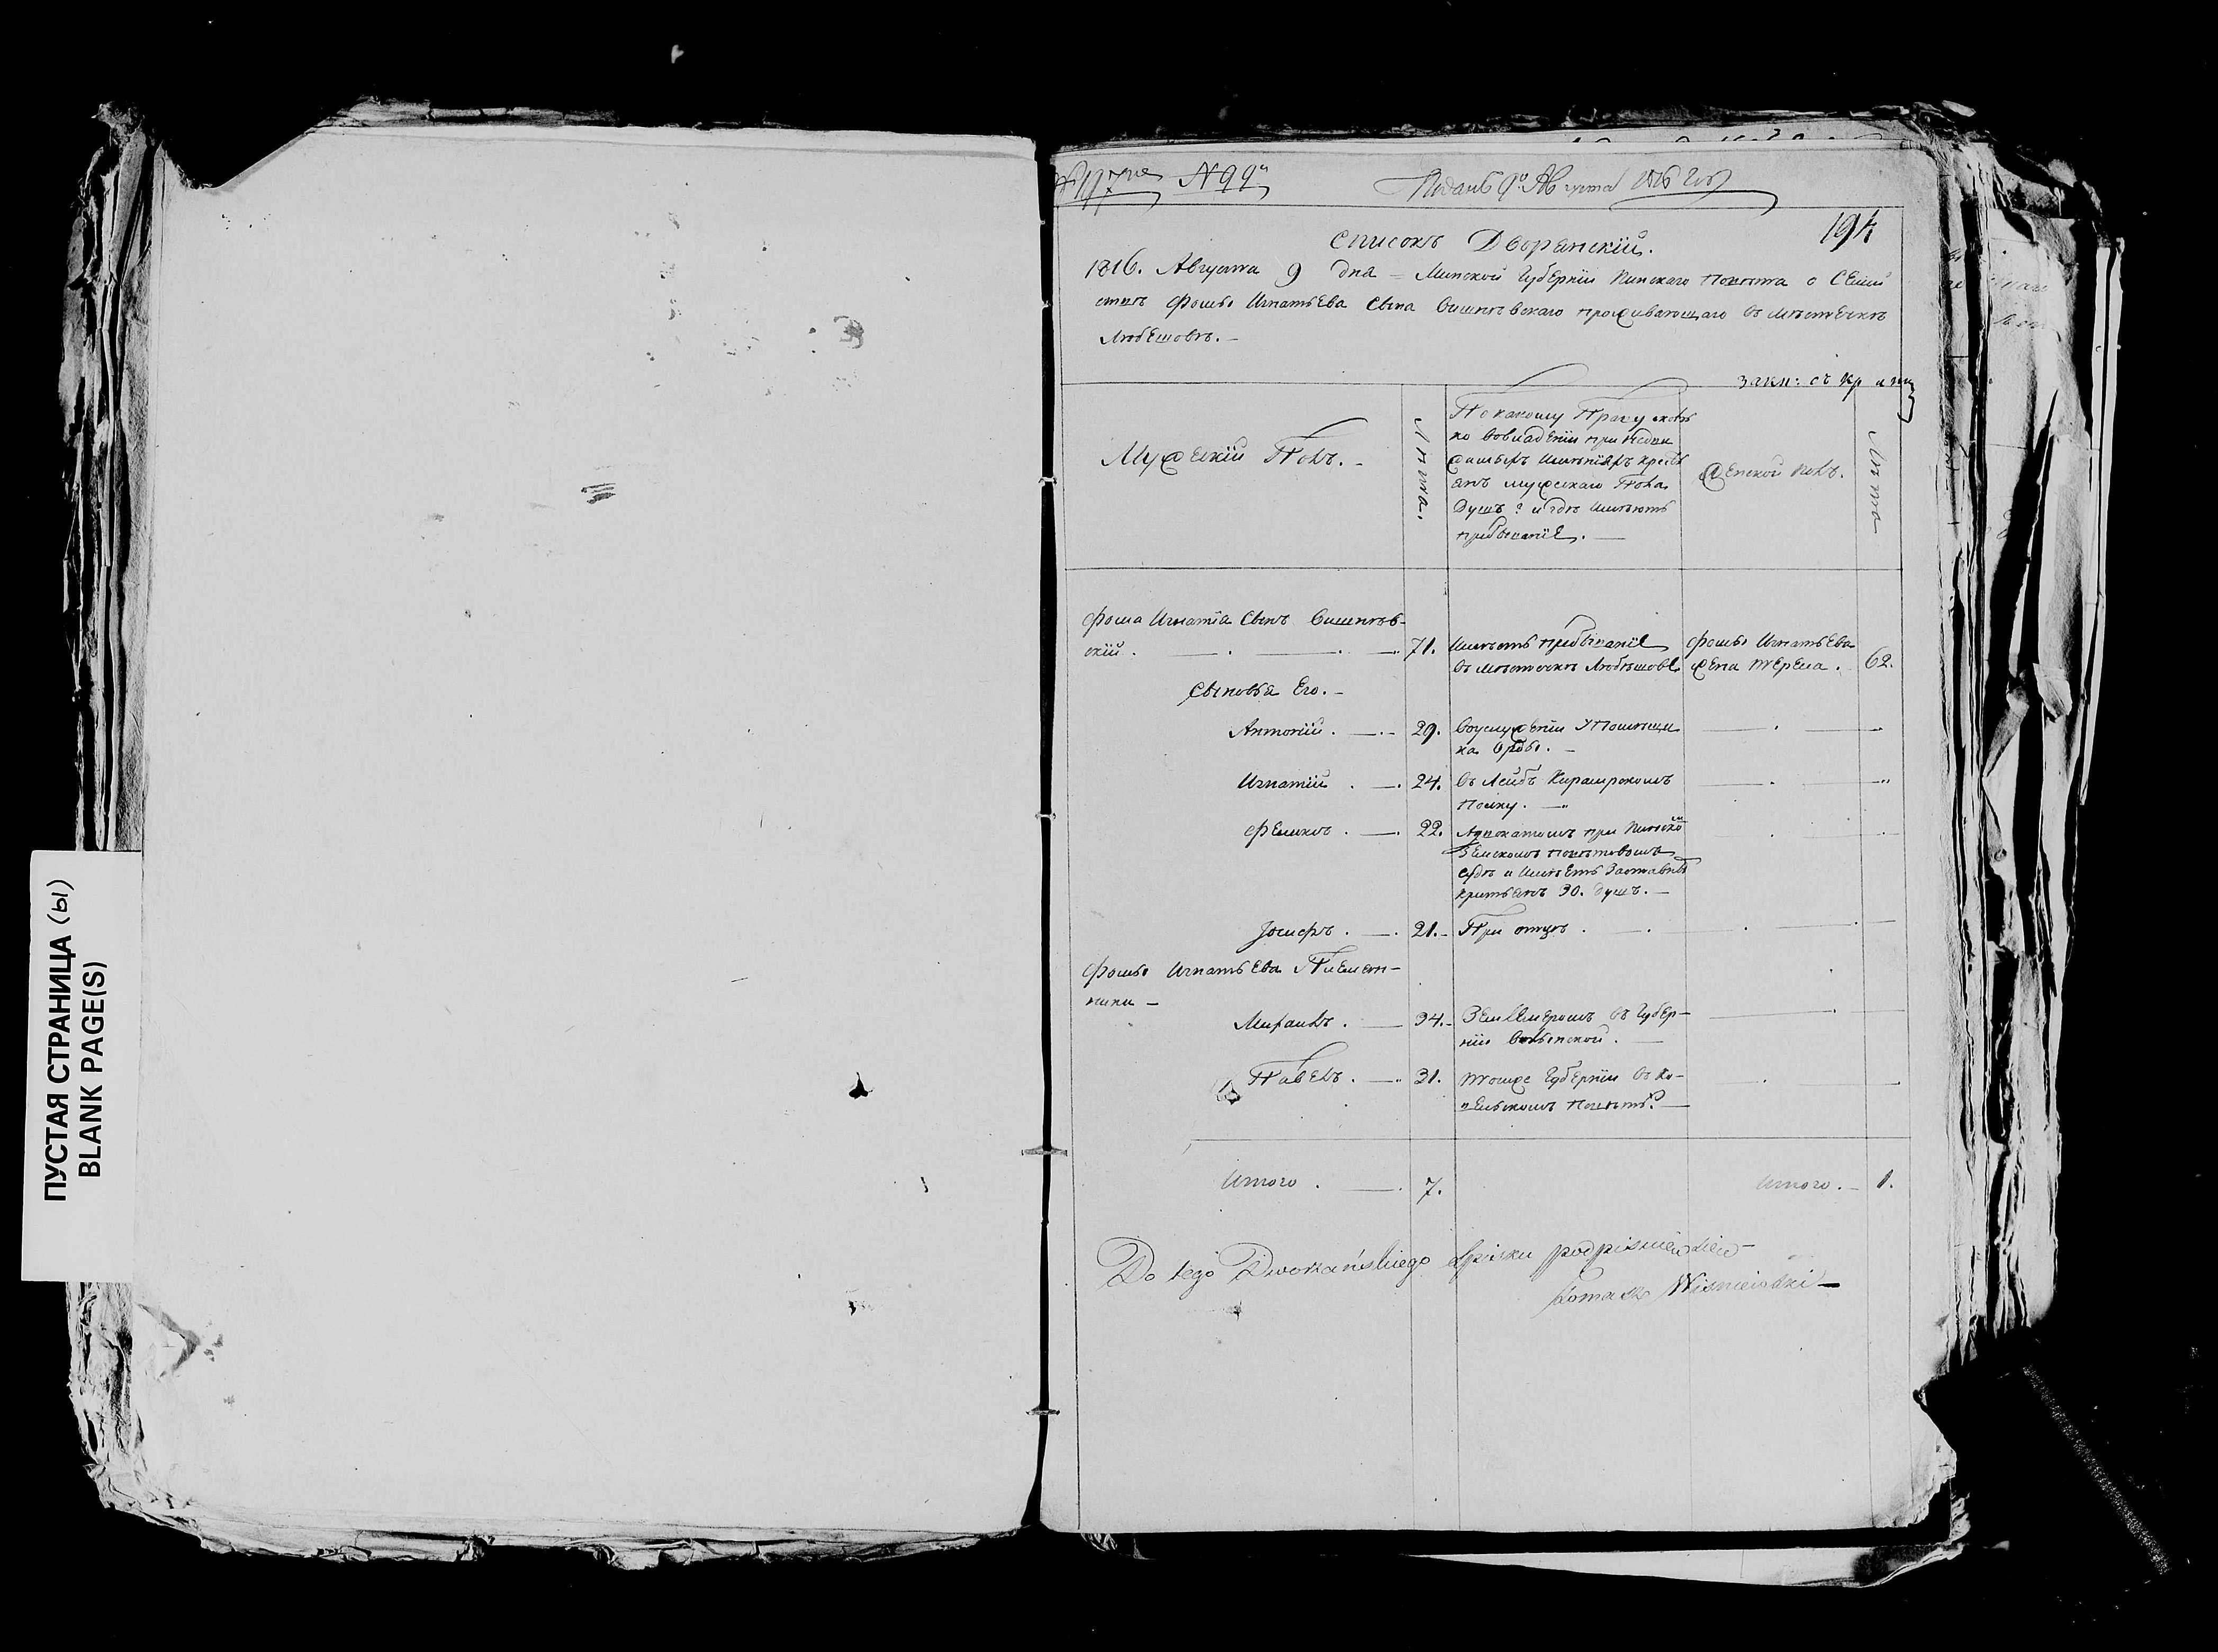 ПУСТАЯ СТРАНИЦА (Ы)
BLANK PAGE(S)
N 99
Поданъ 9го Августа 1816 Года
194
Списокъ Дворянскій.
1816. Августа 9 дня – Минской Губерніи Пинскаго Повѣта о Семей
ствѣ Фомы Игнатьева Сына Вишнѣвскаго проживающаго въ мѣстечкѣ
Любешовѣ. –
Мужескій Полъ. –
Лѣта.
По какому Праву сколь
ко во владѣніи при
имѣніяхъ крестъ
янъ мужескаго Пола
Душъ? и гдѣ имѣютъ
прибываніе. —
Женской полъ.
Лѣта
Фома Игнатія Сынъ Вишнѣв-
скій. 71. Имѣетъ прибываніе Фомы Игнатьева
въ мѣстечкѣ Любѣшовѣ жена Тереса. 62.
Сыновья Его. –
Антоній. 29. Воуслуженіи у Помѣщи
ка Орды. –
Игнатій. 24. Въ Лейбъ Кирасирскомъ
Полку. –
Феликсъ. 22. Адвокатомъ при Пинско
Земскомъ повѣтовомъ
судѣ и имѣетъ
30. душъ. –
Іосифъ. 21. – При отцѣ.
Фомы Игнатьева Племян-
ники –
Михаилъ. 34. – Землемеромъ въ Губер-
ніи Волынской. –
Павелъ. 31. Тоиже Губерніи въ Ко-
вельскомъ Повѣтѣ. –
Итого. 7. Итого. – 1.
Do tego Dworzańskiego Spisku podpisuię się
Tomasz Wiśniewski –